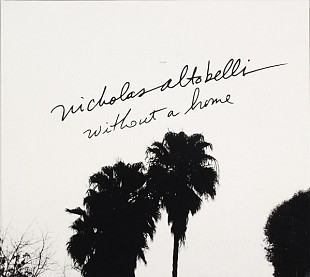 nicholas altobelli
without a home